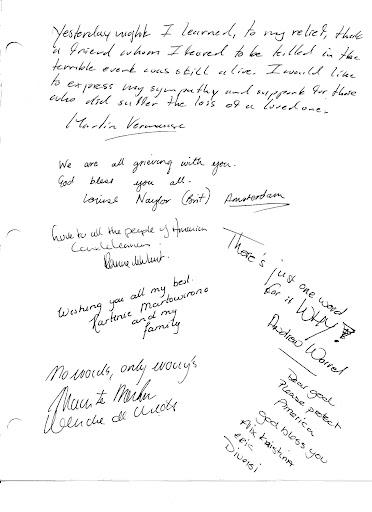 Yesterday night I learned, to my relief, that
a friend whom I feared to be killed in the
terrible event was still alive. I would like
to express my sympathy and support for those
who did suffer the loss of a loved one.
Martin
We are all grieving with you.
God bless you all.
Louise Naylor (Brit) Amsterdam
Love to all the people of American
There's just one word
for it WHY?
Andrew
Wishing you all my best.
Martowirono
and my
family
No words, only worry's
Dear god
Please protect
America
god bless you
eric